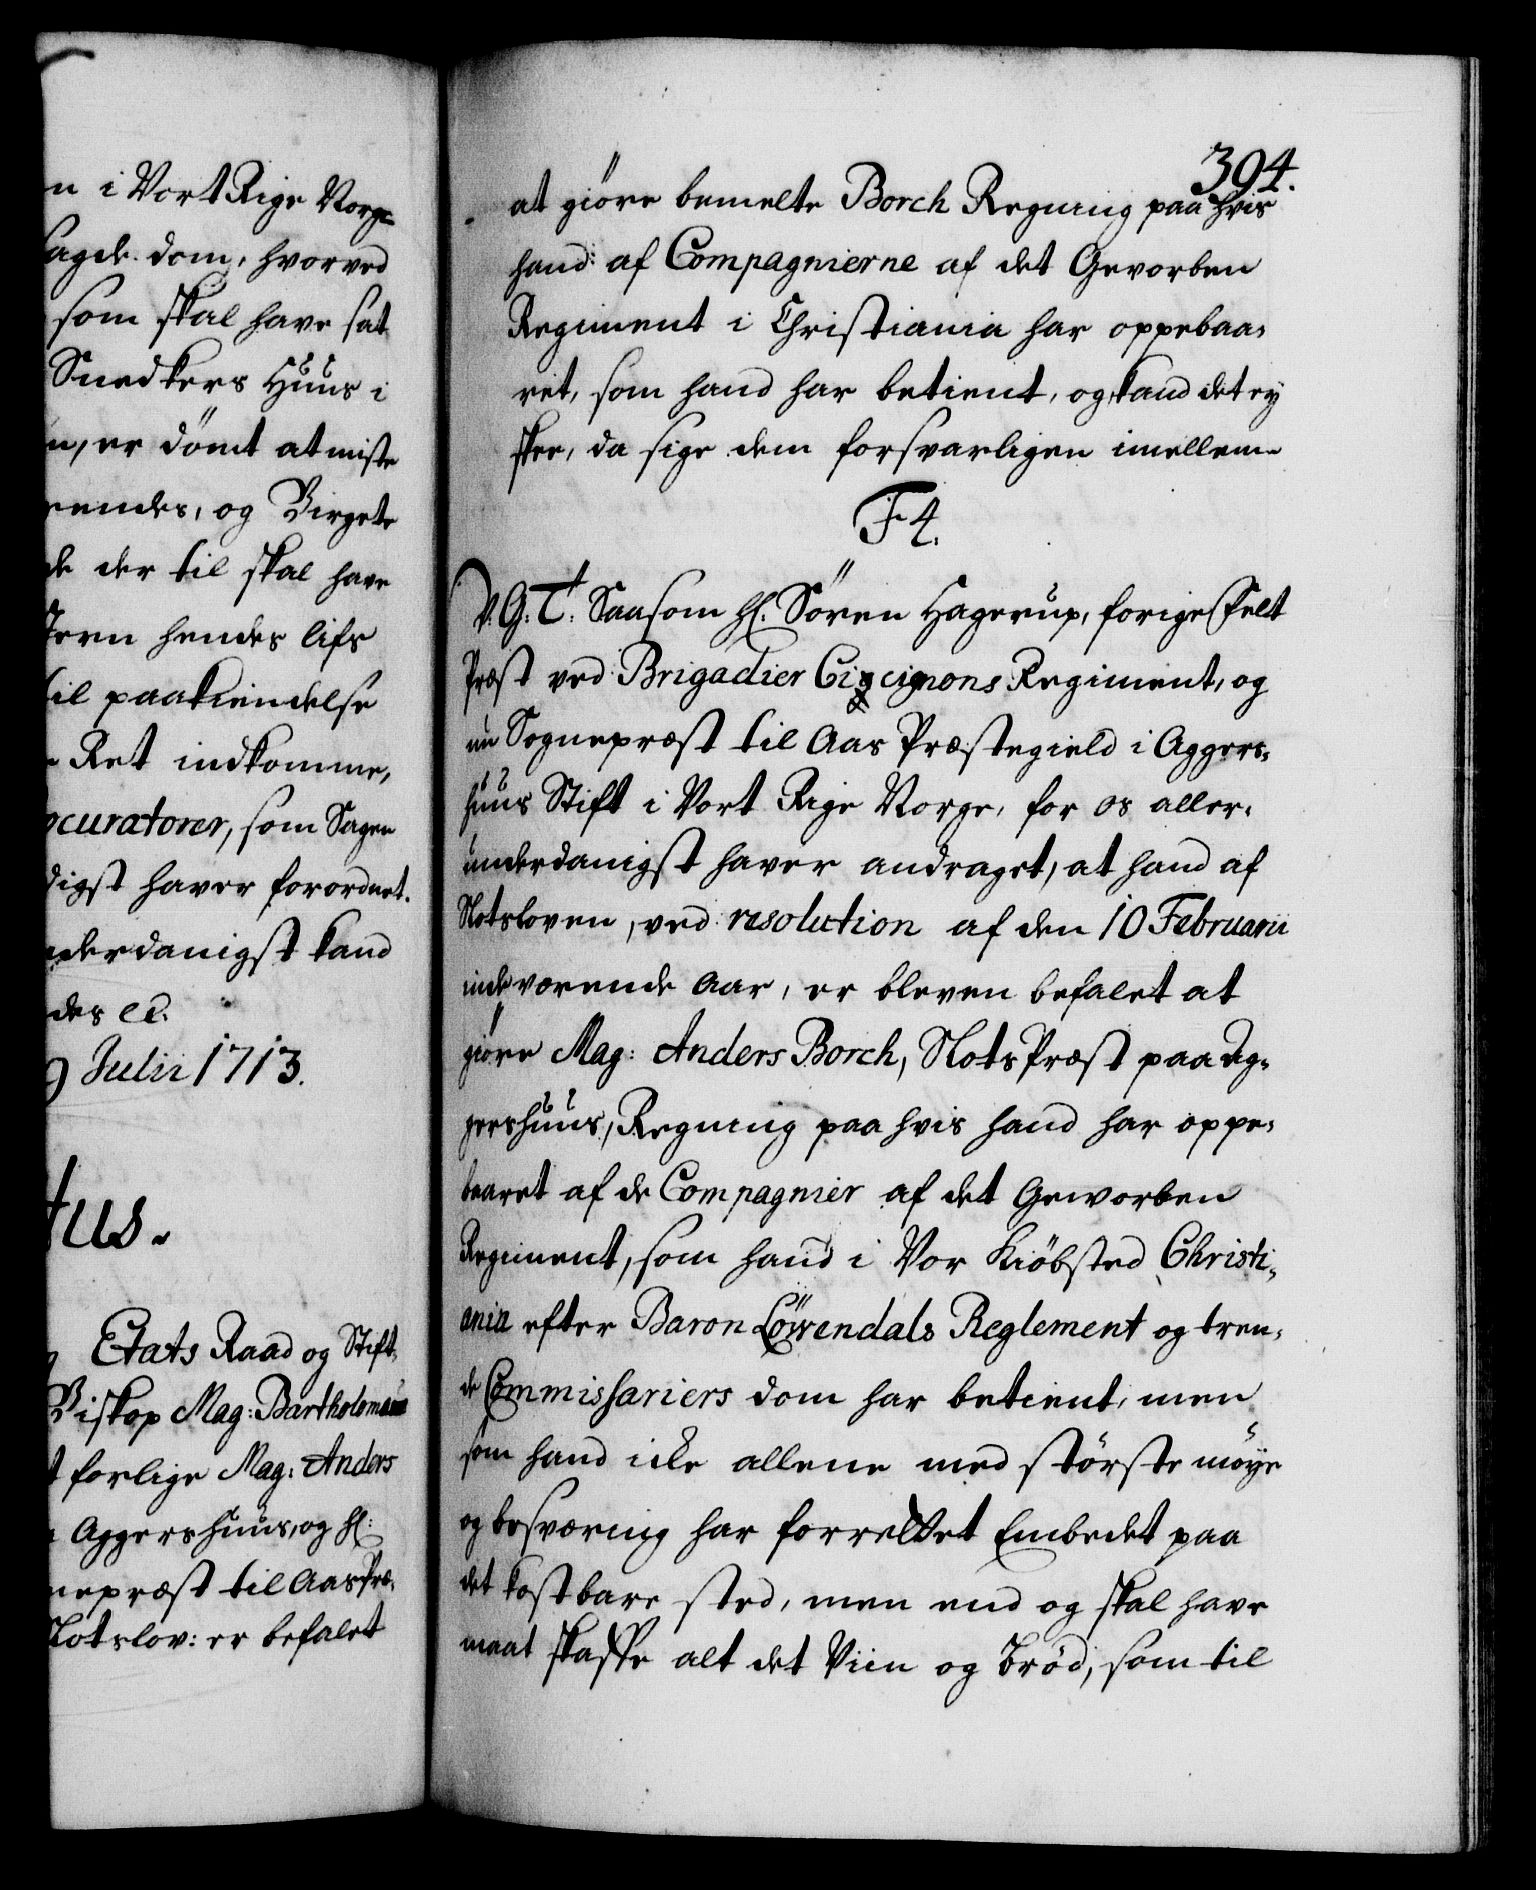 n i Vort Rige Norge
sagde dom, hvorved
som skal have sat
Snedkers Huus i
n, er dömt at miste
rendes, og Birgete
de der til skal have
Jern hendes lifs
til paakiendelse
Ret indkomme,
ocuratorer, som Sagen
digst haver forordnet.
nderdanigst kand
des ec.
9 Julii 1713.
tus.
Etats Raad og Stift-
Biskop Mag: Bartholomæus
t forlige Mag: Anders
Aggershuus, og Hl:
nepræst til Aas Præ-
Slotslov: er befalet
394.
at giöre bemelte Borch Regning paa hvis
hand af Compagnierne af det Gevorben
Regiment i Christiania har oppebaa-
ret, som hand har betient, og kand det ey
skee, da sige dem forsvarligen imellem
F 4.
V. G. T. Saasom Hl. Sören Hagerup, forige Felt
Præst ved Brigadier Cicignons Regiment, og
nu Sognepræst til Aas Præstegield i Aggers-
huus Stift i Vort Rige Norge, for os aller-
underdanigst haver andraget, at hand af
Slotsloven, ved resolution af den 10 Februarii
indeværende Aar, er bleven befalet at
giöre Mag: Anders Borch, SlotsPræst paa Ag-
gershuus, Regning paa hvis hand har oppe-
baaret af de Compagnier af det Geworben
Regiment, som hand i Vor Kiöbsted Christi-
ania efter Baron Löwendals Reglement og tren-
de Commissariers dom har betient, men
som hand icke allene med störste möye
og besværing har forrettet Embedet paa
det kostbare sted, men end og skal have
maat skaffe alt det Viin og Bröd, som til